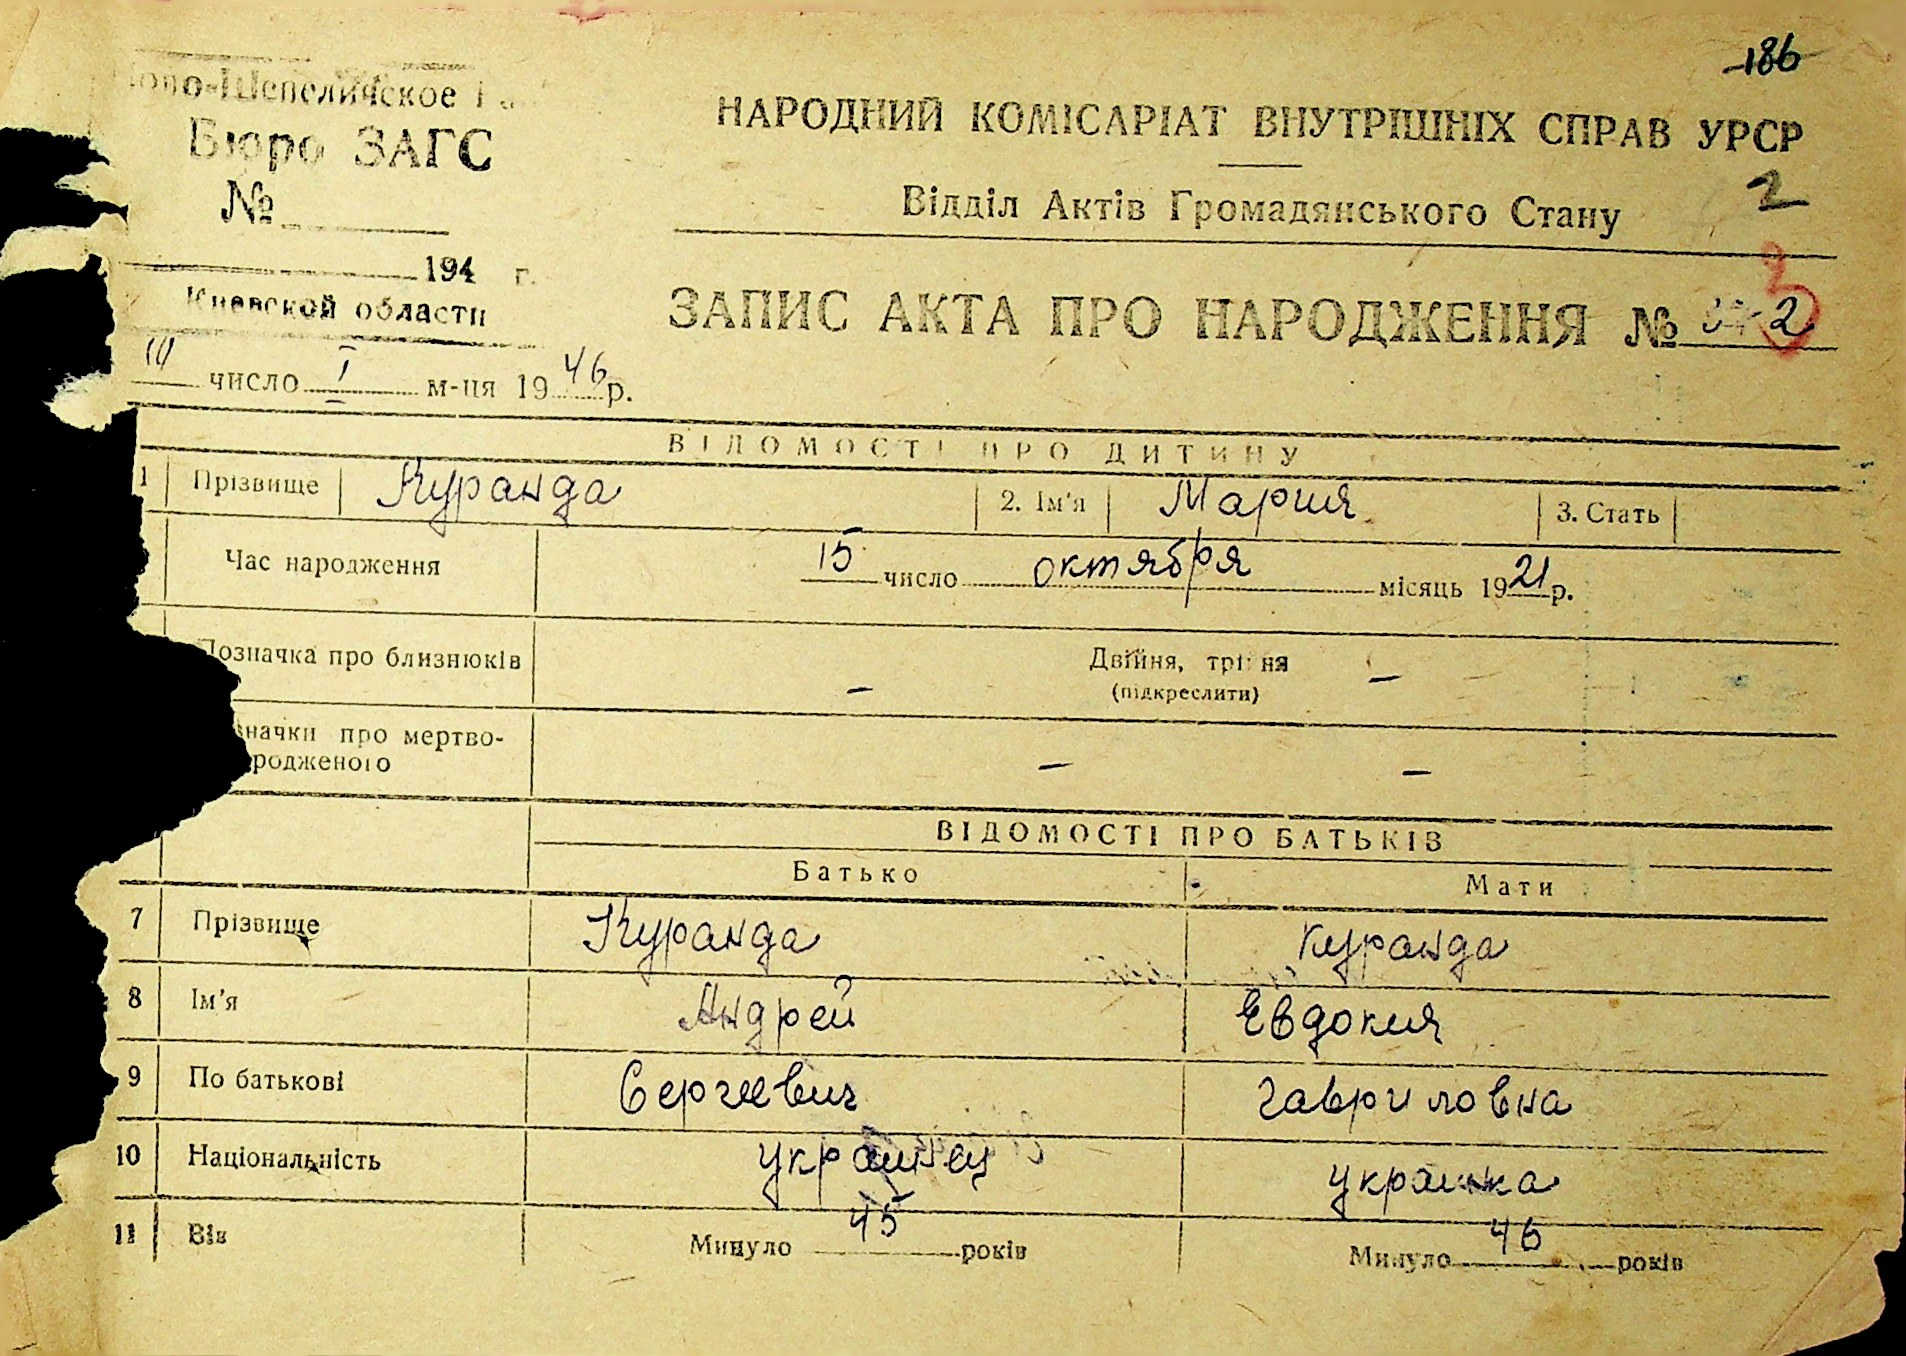 186
-Шепеличское
Бюро ЗАГС
№
194 г.
Киевской области
НАРОДНИЙ КОМІСАРІАТ ВНУТРІШНІХ СПРАВ УРСР
Відділ Актів Громадянського Стану
2
ЗАПИС АКТА ПРО НАРОДЖЕННЯ № 2
3
число I м-ця 1946 р.
ВІДОМОСТІ ПРО ДИТИНУ
1 Прізвище Куранда 2. Ім'я Мария 3. Стать
Час народження 15 число октября місяць 1921 р.
Позначка про близнюків – Двійня, трійня –
(підкреслити)
значки про мертво-
родженого – –
ВІДОМОСТІ ПРО БАТЬКІВ
Батько Мати
7 Прізвище Куранда Куранда
8 Ім'я Андрей Евдокия
9 По батькові Сергеевич Гавриловна
10 Національність украинец украинка
11 Вік Минуло 45 років Минуло 46 років